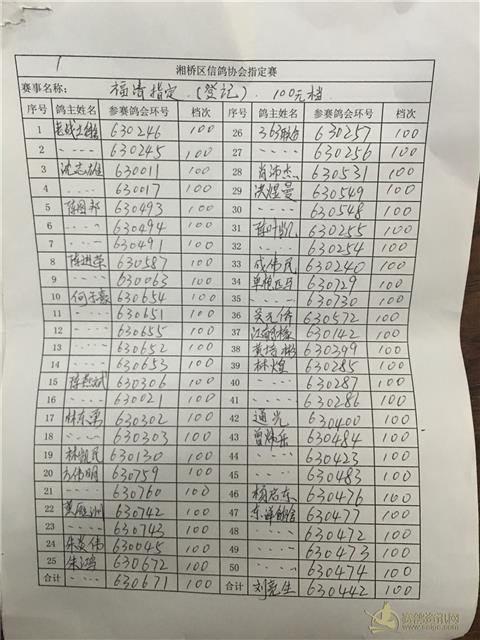 湘桥区信鸽协会指定赛
赛事名称: 福清指定 (登记) 100元档
序号 鸽主姓名 参赛鸽会环号 档次 序号 鸽主姓名 参赛鸽会环号 档次
1 630246 100 26 363联合 630257 100
2 ---- 630245 100 27 ---- 630256 100
3 沈志雄 630011 100 28 肖沛杰 630531 100
4 ---- 630017 100 29 洪煜曼 630549 100
5 陈图邦 630493 100 30 ---- 630548 100
6 ---- 630494 100 31 陈叶凯 630255 100
7 ---- 630491 100 32 ---- 630254 100
8 陈进荣 630587 100 33 成伟民 630240 100
9 ---- 630063 100 34 单枪匹马 630729 100
10 何子豪 630654 100 35 ---- 630730 100
11 ---- 630651 100 36 吴元侨 630572 100
12 ---- 630655 100 37 630142 100
13 ---- 630652 100 38 黄培彬 630399 100
14 ---- 630653 100 39 林煌 630285 100
15 陈燕斌 630306 100 40 ---- 630287 100
16 ---- 630021 100 41 ---- 630286 100
17 林东勇 630302 100 42 通光 630400 100
18 ---- 630303 100 43 曾炜乐 630484 100
19 林凯民 630130 100 44 ---- 630423 100
20 方伟明 630759 100 45 ---- 630483 100
21 ---- 630760 100 46 杨岩东 630476 100
22 630742 100 47 630477 100
23 ---- 630743 100 48 ---- 630472 100
24 朱炎伟 630045 100 49 ---- 630473 100
25 朱鸿 630672 100 50 ---- 630474 100
合计 ---- 630671 100 合计 刘亮生 630442 100
赛鸽资讯网